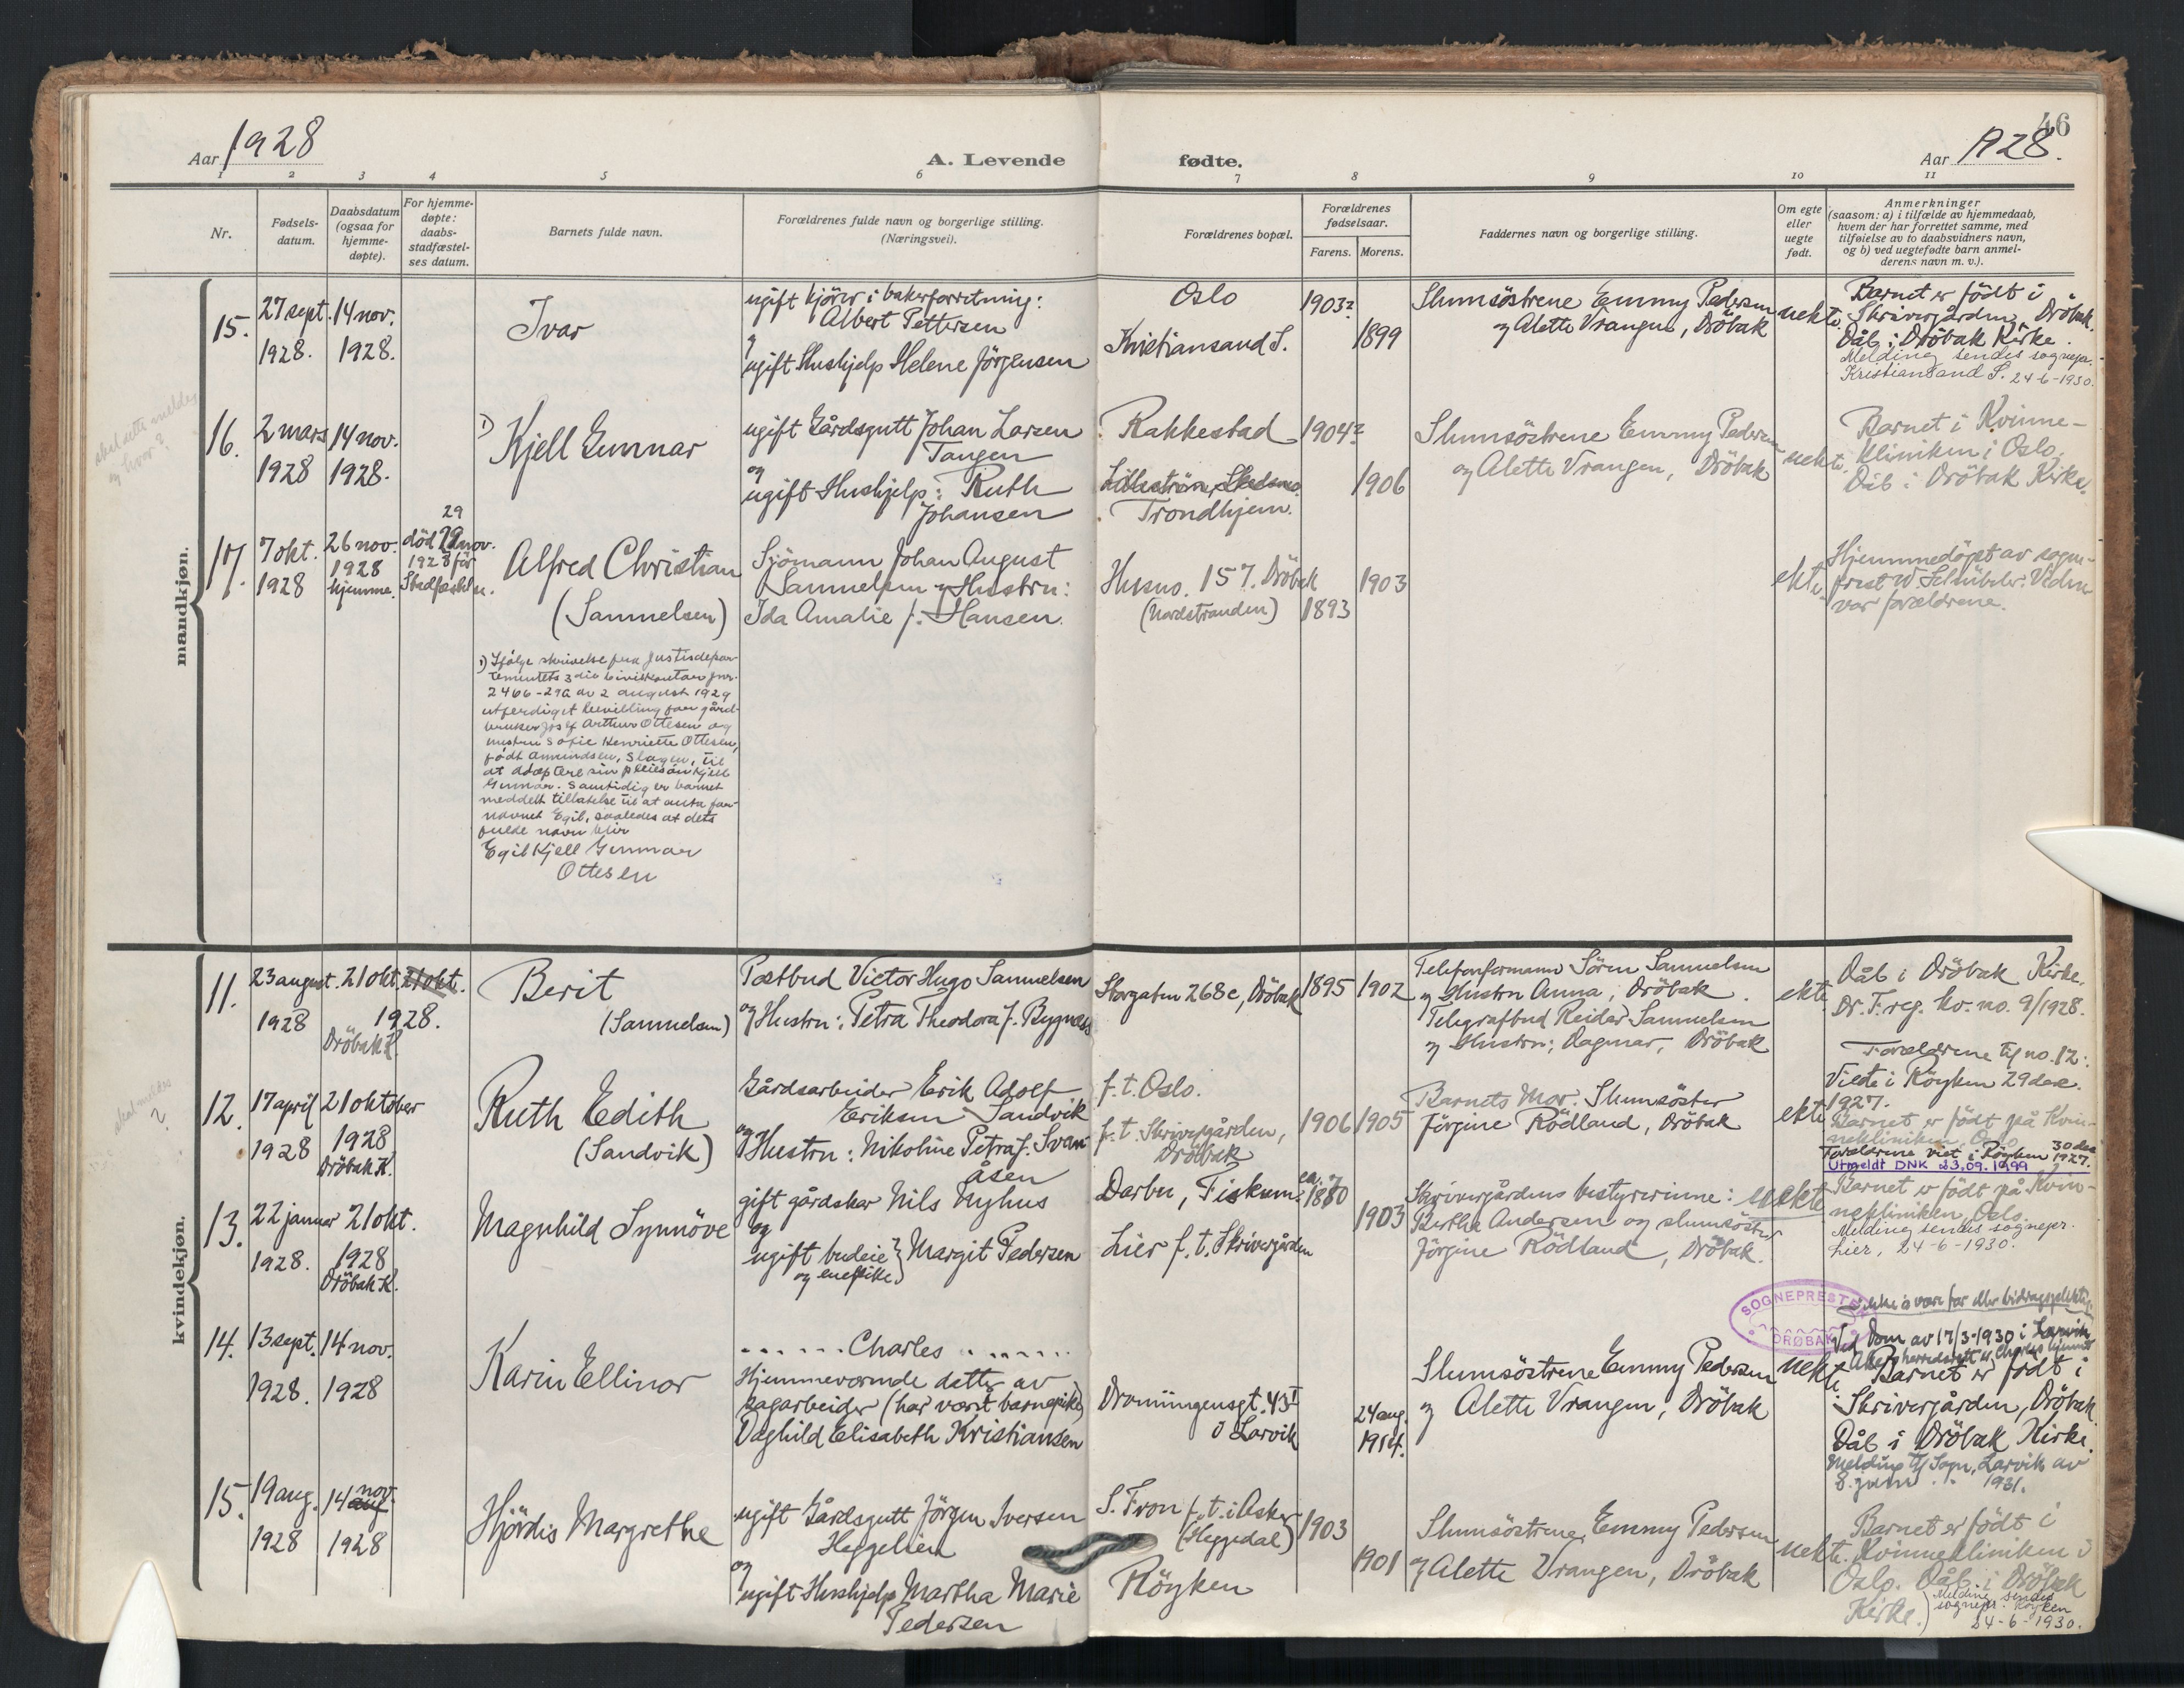 46
Aar 1928
A. Levende
fødte.
Aar 1928.
1 2 3 4 5 6 7 8 9 10 11
Nr.
Fødsels-
datum.
Daabsdatum
(ogsaa for
hjemme-
døpte).
For hjemme-
døpte:
daabs-
stadfæstel-
ses datum.
Barnets fulde navn.
Forældrenes fulde navn og borgerlige stilling.
(Næringsvei).
Forældrenes bopæl.
Forældrenes
fødselsaar.
Farens. Morens.
Faddernes navn og borgerlige stilling.
Om egte
eller
uegte
født.
Anmerkninger
(saasom: a) i tilfælde av hjemmedaab,
hvem der har forrettet samme, med
tilføielse av to daabsvidners navn,
og b) ved uegtefødte barn anmel-
derens navn m. v.).
mandkjøn.
15.
27 sept.
1928.
14 nov.
1928.
Ivar
ugift kjörer i bakerforretning:
Albert Pettersen
og
ugift Hushjelp Helene Jörgensen
Oslo
Kristiansand S.
1903?
1899
Slumsöstrene Emmy Pedersen
og Alette Vrangen, Dröbak
uekte.
Barnet er födt i
Skrivergården, Dröbak.
Dåb i Dröbak Kirke.
Melding sendes sognepr.
Kristiansand S. 24-6-1930.
skal dette meldes
og hvor?
16.
2 mars
1928
14 nov.
1928.
1)
Kjell Gunnar
ugift Gårdsgutt Johan Larsen
Tangen
og
ugift Hushjelp: Ruth
Johansen
Rakkestad
Lilleström, Skedsmo.
Trondhjem.
1904?
1906
Slumsöstrene Emmy Pedersen
og Alette Vrangen, Dröbak
uekte.
Barnet i Kvinne-
kliniken i Oslo.
Dåb i Dröbak Kirke.
17.
7 okt.
1928
26 nov.
1928
hjemme.
29
död 29 nov.
1928 för
Stadfestelsen.
Alfred Christian
(Samuelsen)
Sjömann Johan August
Samuelsen og Hustru:
Ida Amalie f. Hansen.
Husno. 157. Dröbak
(Nordstranden)
1893
1903
ekte.
Hjemmedöpt av sogne-
prest W Schübeler. Vidner
var forældrene.
1) Ifölge skrivelse fra Justisdepar-
tementets 3die Civilkontor jnr.
2466-29A av 2 august 1929
utferdiget bevilling for gård-
bruker Josef Arthur Ottesen og
hustru Sofie Henriette Ottesen,
född Amundsen, Slagen, til
at adoptere sin pleiesön Kjell
Gunnar. Samtidig er barnet
meddelt tillatelse til at anta for-
navnet Egil, saaledes at dets
fulde navn blir
Egil Kjell Gunnar
Ottesen
kvindekjøn.
11.
23 august.
1928
21 okt.
21 okt.
1928.
Dröbak K.
Berit
(Samuelsen)
Postbud Victor Hugo Samuelsen
og Hustru: Petra Theodora f. Bygnæss
Storgaten 268c, Dröbak
1895
1902
Telefonformann Sören Samuelsen
og Hustru Anna, Dröbak.
Telegrafbud Reidar Samuelsen
og Hustru: Dagmar, Dröbak
ekte.
Dåb i Dröbak Kirke.
Dr. F. reg. ko. no. 9/1928.
skal meldes
?
12.
17 april
1928
21 oktober
1928
Dröbak K.
Ruth Edith
(Sandvik)
Gårdsarbeider Erik Adolf
Eriksen Sandvik
og Hustru: Nikoline Petra f. Svan-
åsen
f. t. Oslo.
f. t. Skrivergården,
Dröbak
1906
1905
Barnets Mor. Slumsöster
Jörgine Rödland, Dröbak
ekte
Forældrene til no. 12:
Viede i Röyken 29 des.
1927.
Barnet er födt på Kvin-
nekliniken, Oslo
Forældrene viet i Röyken 30 des 1927.
Utmeldt DNK 23.09.1999
13.
22 januar
1928.
21 okt.
1928
Dröbak K.
Magnhild Synnöve
gift gårdskar Nils Nyhus
og
ugift budeie } Margit Pedersen
og enepike
Darbu, Fiskum.
Lier f. t. Skrivergården
ca.
1880
1903
Skrivergårdens bestyrerinne:
Berthe Andersen og slumsöster
Jörgine Rödland, Dröbak.
uekte
Barnet er födt på Kvin-
nekliniken, Oslo.
Melding sendes sognepr.
Lier, 24-6-1930.
SOGNEPRESTEN
DRØBAK
14.
13 sept.
1928.
14 nov.
1928
Karin Ellinor
...... Charles ......
Hjemmeværende datter av
sagarbeider (har været barnepike)
Daghild Elisabeth Kristiansen
Dronningensgt. 43 I
Larvik
24 aug.
1914.
Slumsöstrene Emmy Pedersen
og Alette Vrangen, Dröbak
uekte.
ikke å være far eller bidragspliktig.
Ved Dom av 17/3-1930 i Larvik
Barnet er födt i
Skrivergården, Dröbak.
Dåb i Dröbak Kirke.
Melding til Sogn. Larvik av
8. juni 1931.
15.
19 aug.
1928
14 aug nov.
1928
Hjördis Margrethe
ugift Gårdsgutt Jörgen Iversen
Heggelien
og
ugift Hushjelp Martha Marie
Pedersen
S. Fron f. t. i Asker
(Heggedal)
Röyken
1903
1901
Slumsöstrene Emmy Pedersen
og Alette Vrangen, Dröbak
uekte.
Barnet er födt i
Kvinnekliniken i
Oslo. Dåb i Dröbak
Kirke.
Melding sendes
sognepr. Röyken
24-6-1930.